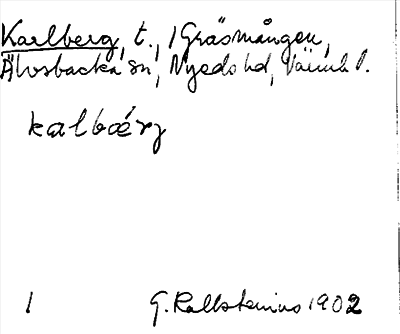 Karlberg, t., i Gräsmången,
Älvsbacka sn, Nyeds hd, Värml l.
kalbærj
1 G. Kallstenius 1902